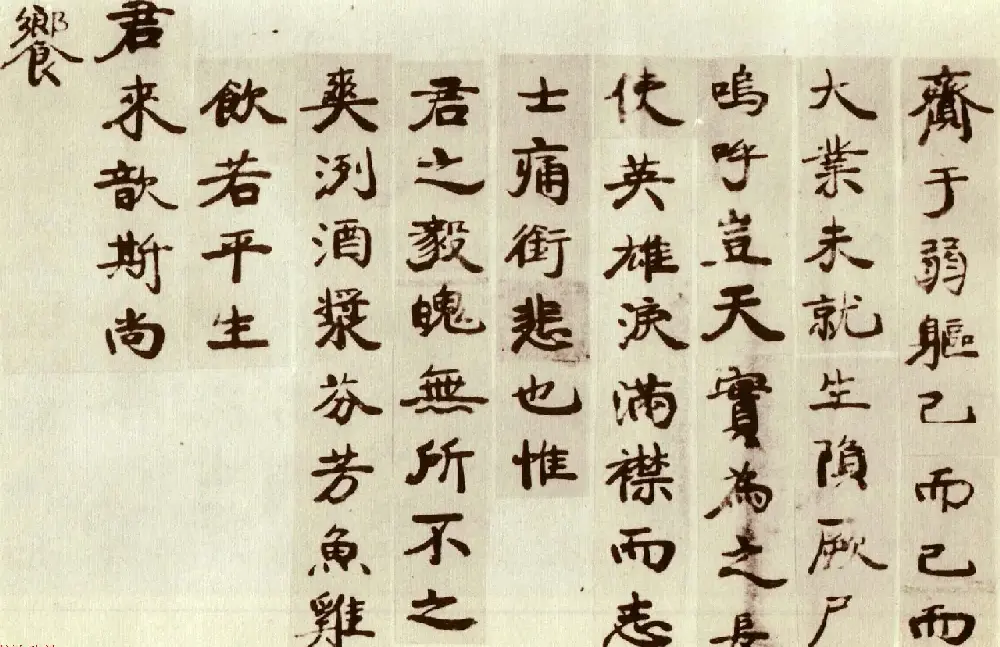 齎于弱軀已而已而
大業未就生隕厥尸
嗚呼豈天實為之長
使英雄淚滿襟而志
士痛銜悲也惟
君之毅魄無所不之
爽洌酒漿芬芳魚雞
飲若平生
君來歆斯尚
饗